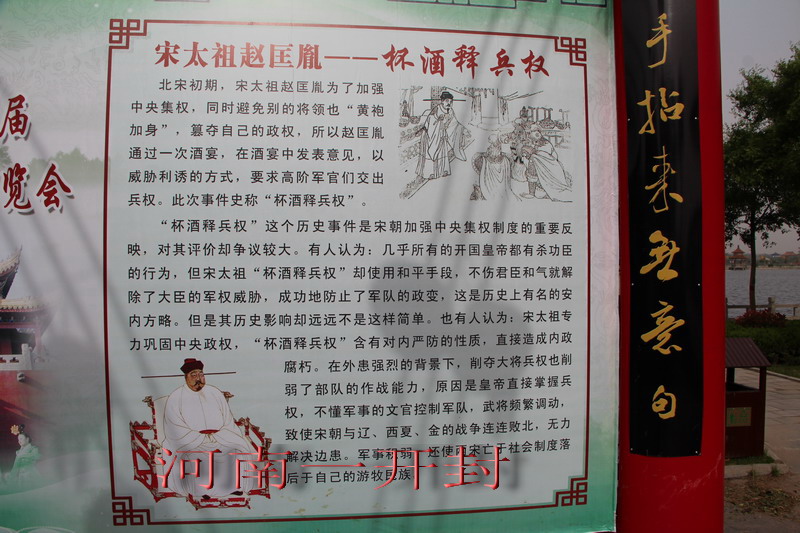 宋太祖赵匡胤——杯酒释兵权
北宋初期，宋太祖赵匡胤为了加强
中央集权，同时避免别的将领也“黄袍
加身”，篡夺自己的政权，所以赵匡胤
通过一次酒宴，在酒宴中发表意见，以
威胁利诱的方式，要求高阶军官们交出
兵权。此次事件史称“杯酒释兵权”。
“杯酒释兵权”这个历史事件是宋朝加强中央集权制度的重要反
映，对其评价却争议较大。有人认为：几乎所有的开国皇帝都有杀功臣
的行为，但宋太祖“杯酒释兵权”却使用和平手段，不伤君臣和气就解
除了大臣的军权威胁，成功地防止了军队的政变，这是历史上有名的安
内方略。但是其历史影响却远远不是这样简单。也有人认为：宋太祖专
力巩固中央政权，“杯酒释兵权”含有对内严防的性质，直接造成内政
腐朽。在外患强烈的背景下，削夺大将兵权也削
弱了部队的作战能力，原因是皇帝直接掌握兵
权，不懂军事的文官控制军队，武将频繁调动，
致使宋朝与辽、西夏、金的战争连连败北，无力
解决边患。军事积弱，还使两宋亡于社会制度落
后于自己的游牧民族。
河南—开封
届
览会
手拈来无意句